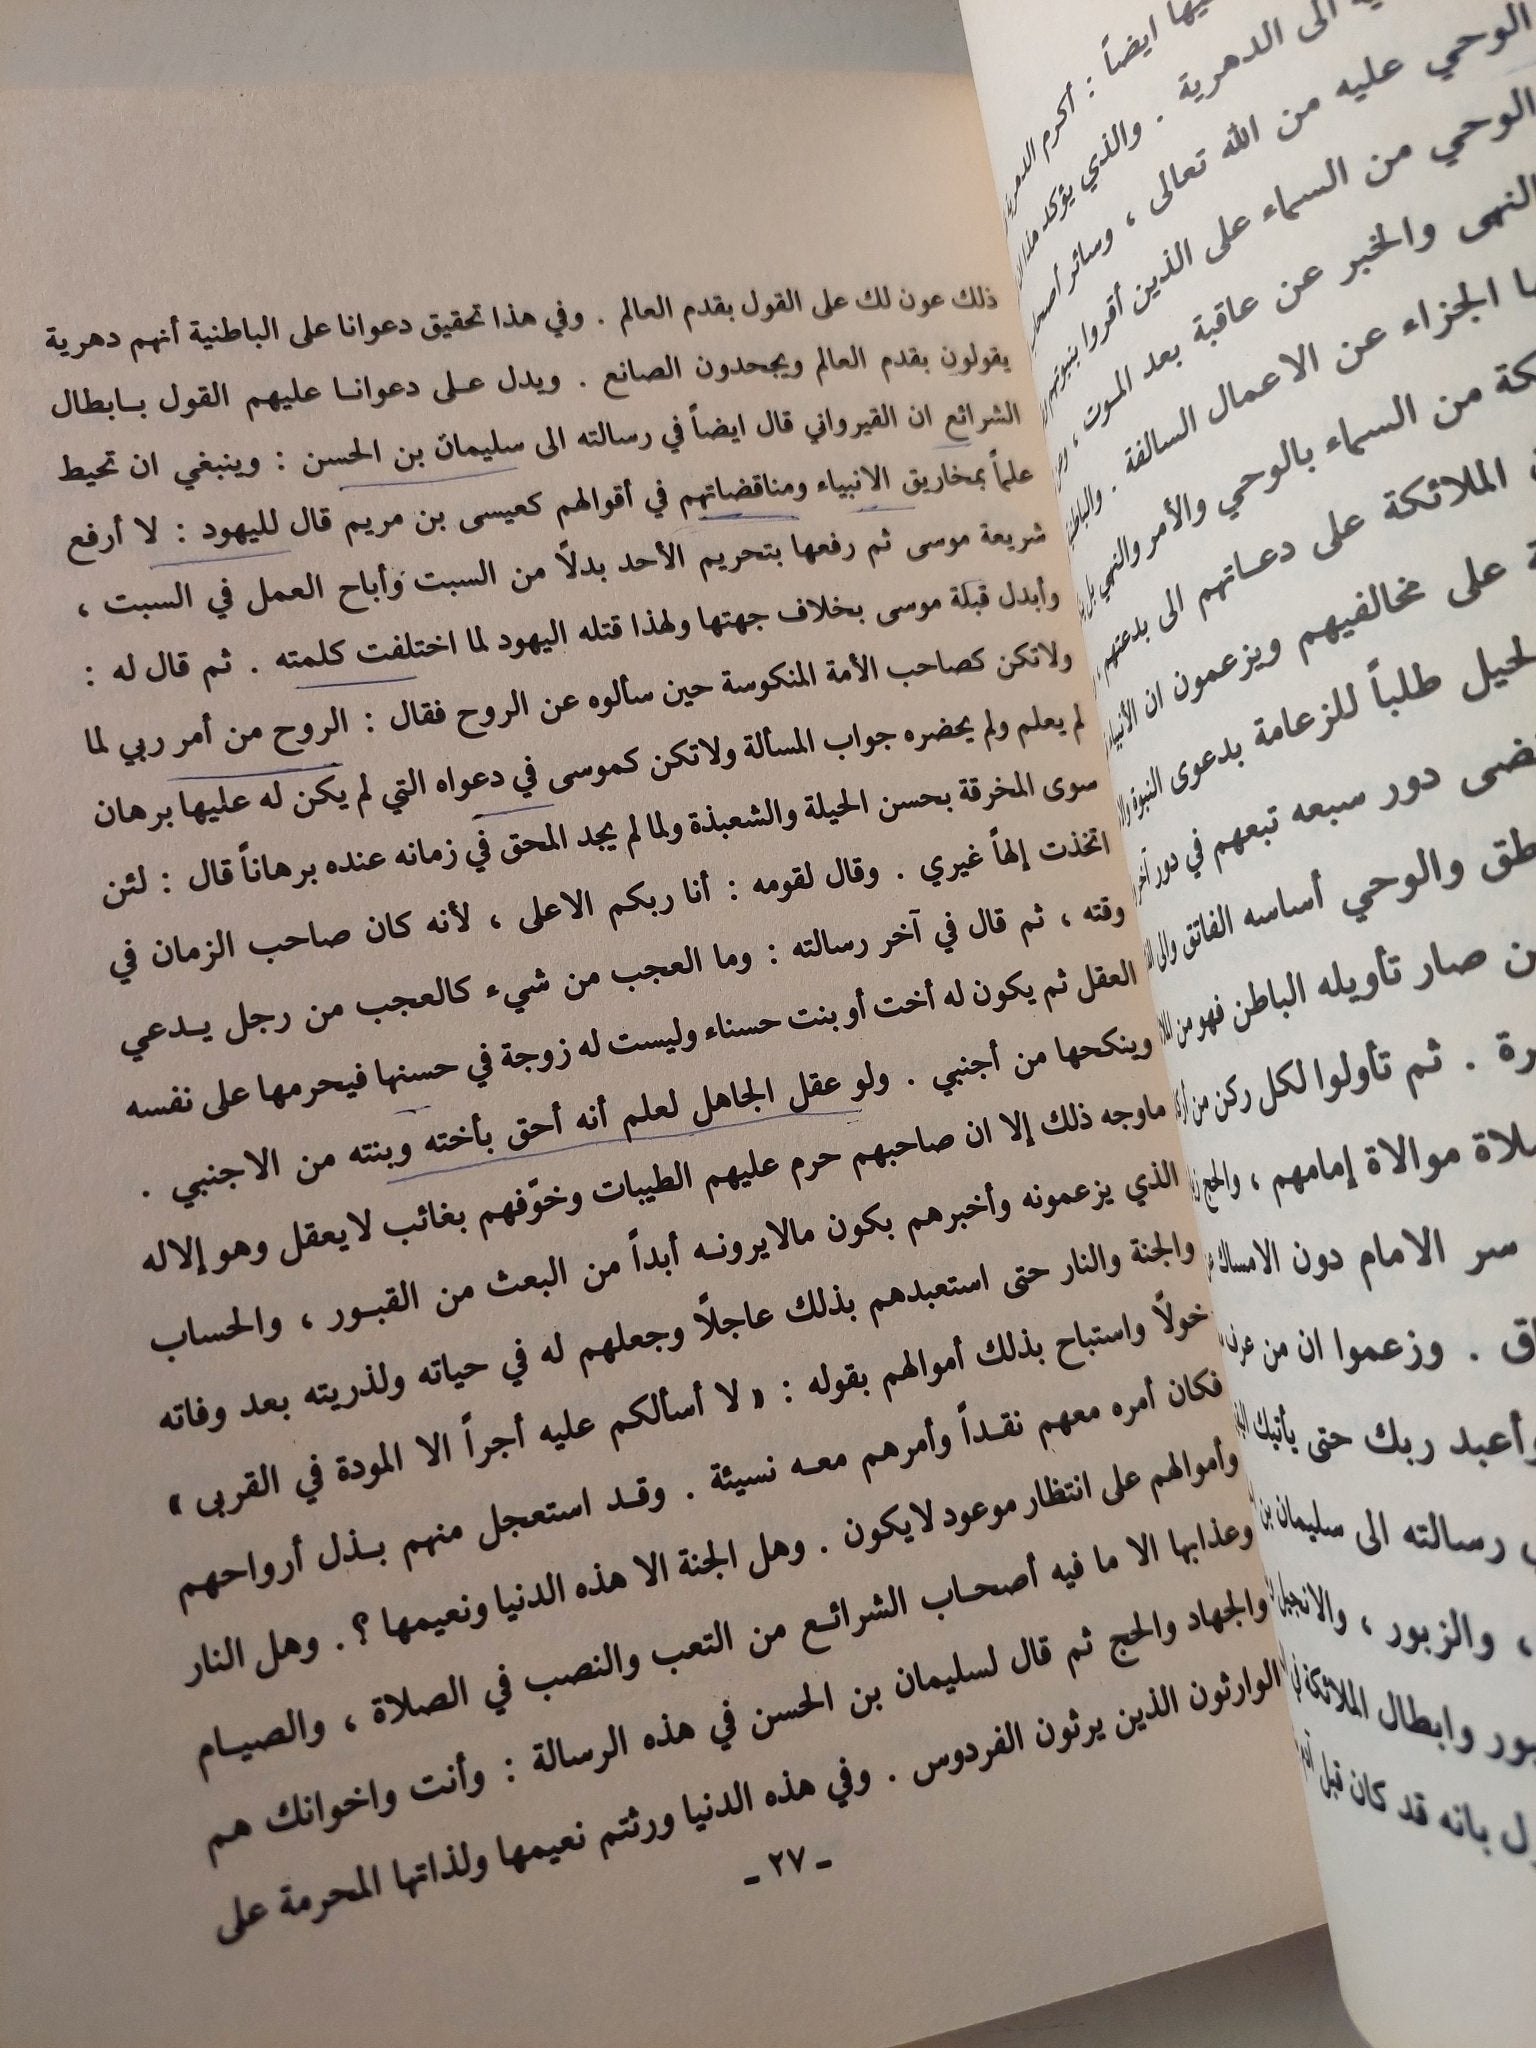 ذلك عون لك على القول بقدم العالم . وفي هذا تحقيق دعوانا على الباطنية أنهم دهرية
يقولون بقدم العالم ويجحدون الصانع . ويدل على دعوانا عليهم القول بابطال
الشرائع ان القيرواني قال ايضاً في رسالته الى سليمان بن الحسن : وينبغي ان تحيط
علماً بمخاريق الانبياء ومناقضاتهم في أقوالهم كعيسى بن مريم قال لليهود : لا أرفع
شريعة موسى ثم رفعها بتحريم الأحد بدلاً من السبت وأباح العمل في السبت ،
وأبدل قبلة موسى بخلاف جهتها ولهذا قتله اليهود لما اختلفت كلمته . ثم قال له :
ولاتكن كصاحب الأمة المنكوسة حين سألوه عن الروح فقال : الروح من أمر ربي لما
لم يعلم ولم يحضره جواب المسألة ولاتكن كموسى في دعواه التي لم يكن له عليها برهان
سوى المخرقة بحسن الحيلة والشعبذة ولما لم يجد المحق في زمانه عنده برهاناً قال : لئن
اتخذت إلهاً غيري . وقال لقومه : أنا ربكم الاعلى ، لأنه كان صاحب الزمان في
وقته ، ثم قال في آخر رسالته : وما العجب من شيء كالعجب من رجل يدعي
العقل ثم يكون له أخت أو بنت حسناء وليست له زوجة في حسنها فيحرمها على نفسه
وينكحها من أجنبي . ولو عقل الجاهل لعلم أنه أحق بأخته وبنته من الاجنبي .
ماوجه ذلك إلا ان صاحبهم حرم عليهم الطيبات وخوّفهم بغائب لايعقل وهو إلاله
الذي يزعمونه وأخبرهم بكون مالايرونه أبداً من البعث من القبور ، والحساب
والجنة والنار حتى استعبدهم بذلك عاجلاً وجعلهم له في حياته ولذريته بعد وفاته
خولاً واستباح بذلك أموالهم بقوله : « لا أسألكم عليه أجراً الا المودة في القربى »
فكان أمره معهم نقداً وأمرهم معه نسيئة . وقد استعجل منهم بذل أرواحهم
وأموالهم على انتظار موعود لايكون . وهل الجنة الا هذه الدنيا ونعيمها ؟ . وهل النار
وعذابها الا ما فيه أصحاب الشرائع من التعب والنصب في الصلاة ، والصيام
والجهاد والحج ثم قال لسليمان بن الحسن في هذه الرسالة : وأنت واخوانك هم
الوارثون الذين يرثون الفردوس . وفي هذه الدنيا ورثتم نعيمها ولذاتها المحرمة على
ـ ٢٧ ـ
ايضاً : أكرم
الى الدهرية . والذي يؤكد هذا
الوحي عليه من الله تعالى ، وسائر
الوحي من السماء على الذين أقروا بنبوتهم
النهى والخبر عن عاقبة بعد الموت ،
الجزاء عن الاعمال السالفة .
من السماء بالوحي والأمر والنهي بل
الملائكة على دعاتهم الى بدعتهم ،
على مخالفيهم ويزعمون ان
طلباً للزعامة بدعوى النبوة
دور سبعه تبعهم في دور آخر
والوحي أساسه الفاتق والى
صار تأويله الباطن فهو من
. ثم تأولوا لكل ركن من
موالاة إمامهم ، والحج
سر الامام دون الامساك
. وزعموا ان من عرف
وأعبد ربك حتى يأتيك
رسالته الى سليمان بن
، والزبور ، والانجيل
وابطال الملائكة في
بانه قد كان قبل آدم